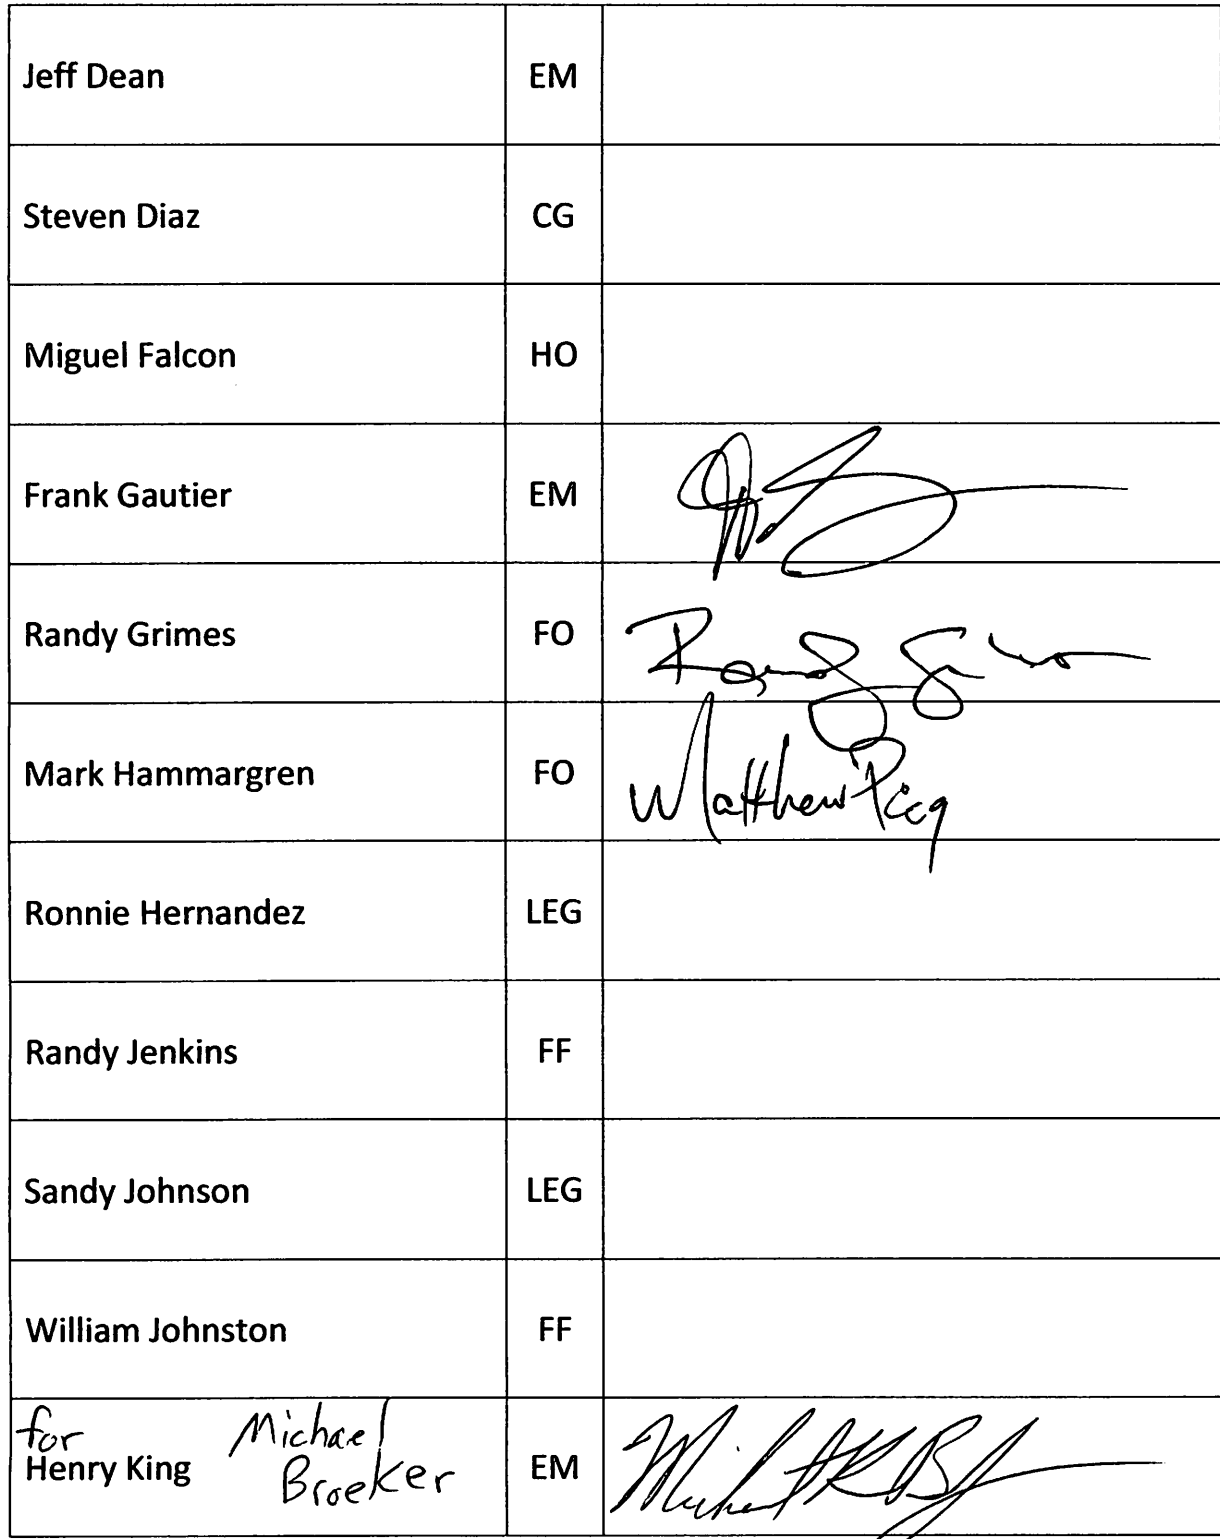 Jeff Dean EM
Steven Diaz CG
Miguel Falcon HO
Frank Gautier EM
Randy Grimes FO Randy
Mark Hammargren FO Matthew
Ronnie Hernandez LEG
Randy Jenkins FF
Sandy Johnson LEG
William Johnston FF
for Michael
Henry King Broeker EM Michael